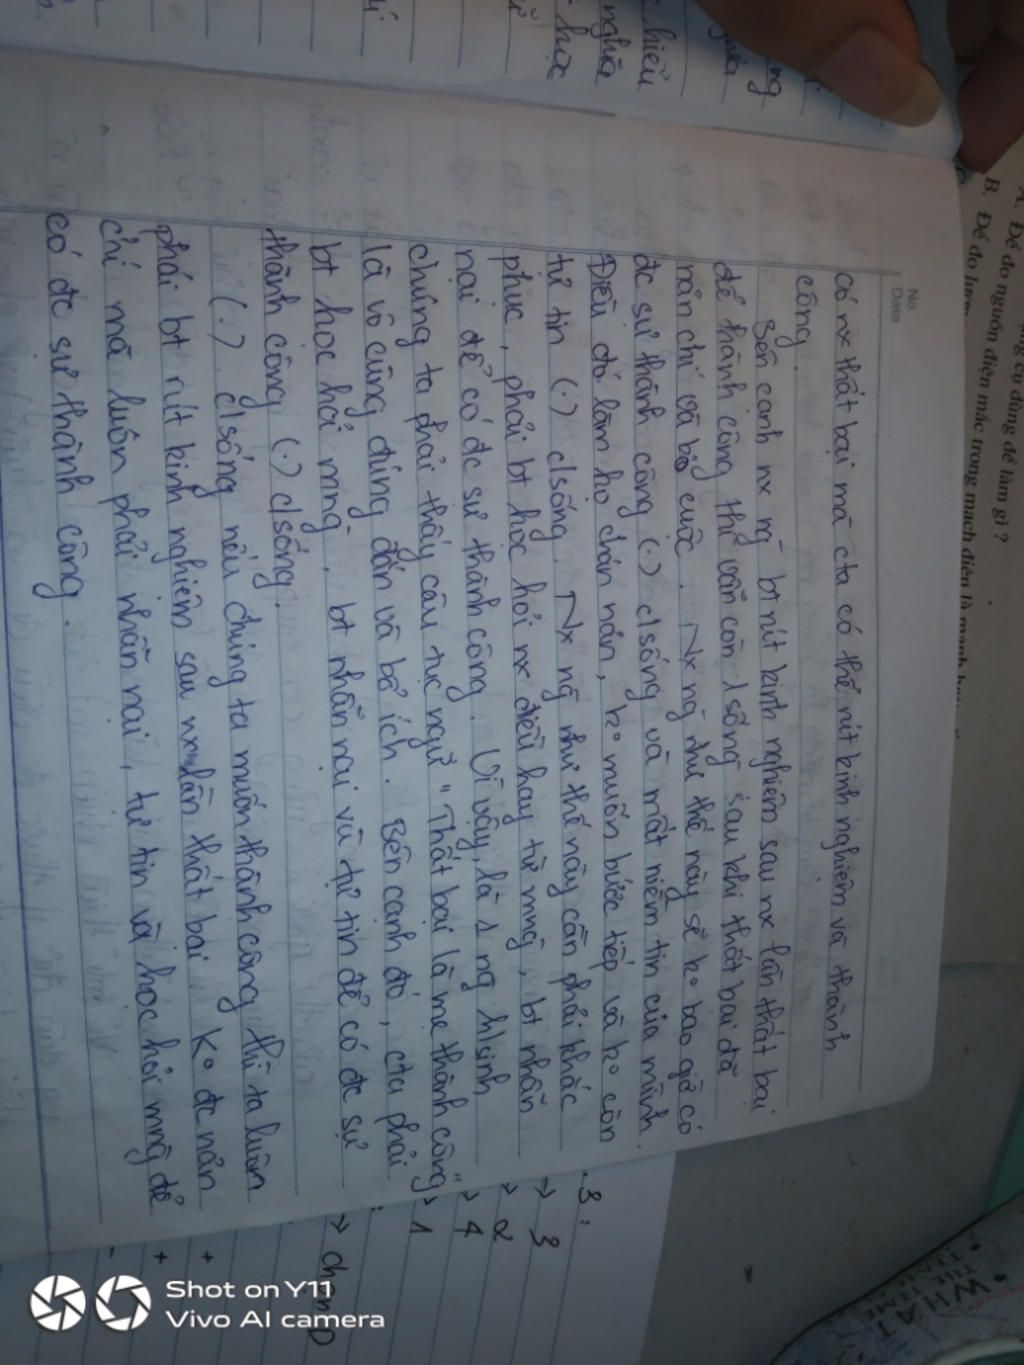 No.
Date
có nx thất bại mà cta có thể rút kinh nghiệm và thành
công.
Bên cạnh nx ng̃ bt rút kinh nghiệm sau nx lần thất bại
để thành công thì vẫn còn 1 số ng̃ sau khi thất bại đã
nản chí và bỏ cuộc. Nx ng̃ như thế này sẽ ko bao giờ có
đc sự thành công (.) c/sống và mất niềm tin của mình.
Điều đó làm họ chán nản, ko muốn bước tiếp và ko còn
tự tin (.) c/sống. Nx ng̃ như thế này cần phải khắc
phục, phải bt học hỏi nx điều hay từ mng̃, bt nhẫn
nại để có đc sự thành công. Vì vậy, là 1 ng h/sinh
chúng ta phải thấy câu tục ngữ "Thất bại là mẹ thành công"
là vô cùng đúng đắn và bổ ích. Bên cạnh đó, cta phải
bt học hỏi mng̃, bt nhẫn nại và tự tin để có đc sự
thành công (.) c/sống.
(.) c/sống nếu chúng ta muốn thành công thì ta luôn
phải bt rút kinh nghiệm sau nx lần thất bại. Ko đc nản
chí mà luôn phải nhẫn nại, tự tin và học hỏi mng̃ để
có đc sự thành công.
hiểu
nghĩa
học
A. Để đo nguồn điện mắc trong mạch điện là mạch
cụ dùng để làm gì?
B. Để đo
3:
→ 3
→ 2
→ 4
→ 1
WHAT
THE
TIME
Shot on Y11
Vivo AI camera